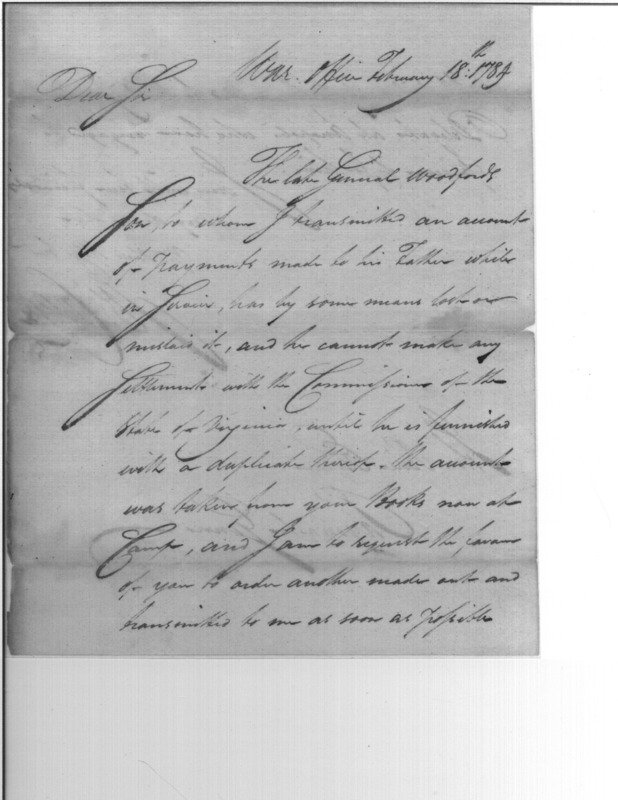 War Office February 18th. 1784
Dear Sir
The late General Woodfords
Son, to whom I transmitted an account
of payments made to his Father while
in Service, has by some means lost or
mislaid it, and he cannot make any
Settlement with the Commissioner of the
State of Virginia, until he is furnished
with a duplicate thereof. The account
was taken from your Books now at
Camp, and I am to request the favor
of you to order another made out and
transmitted to me as soon as possible